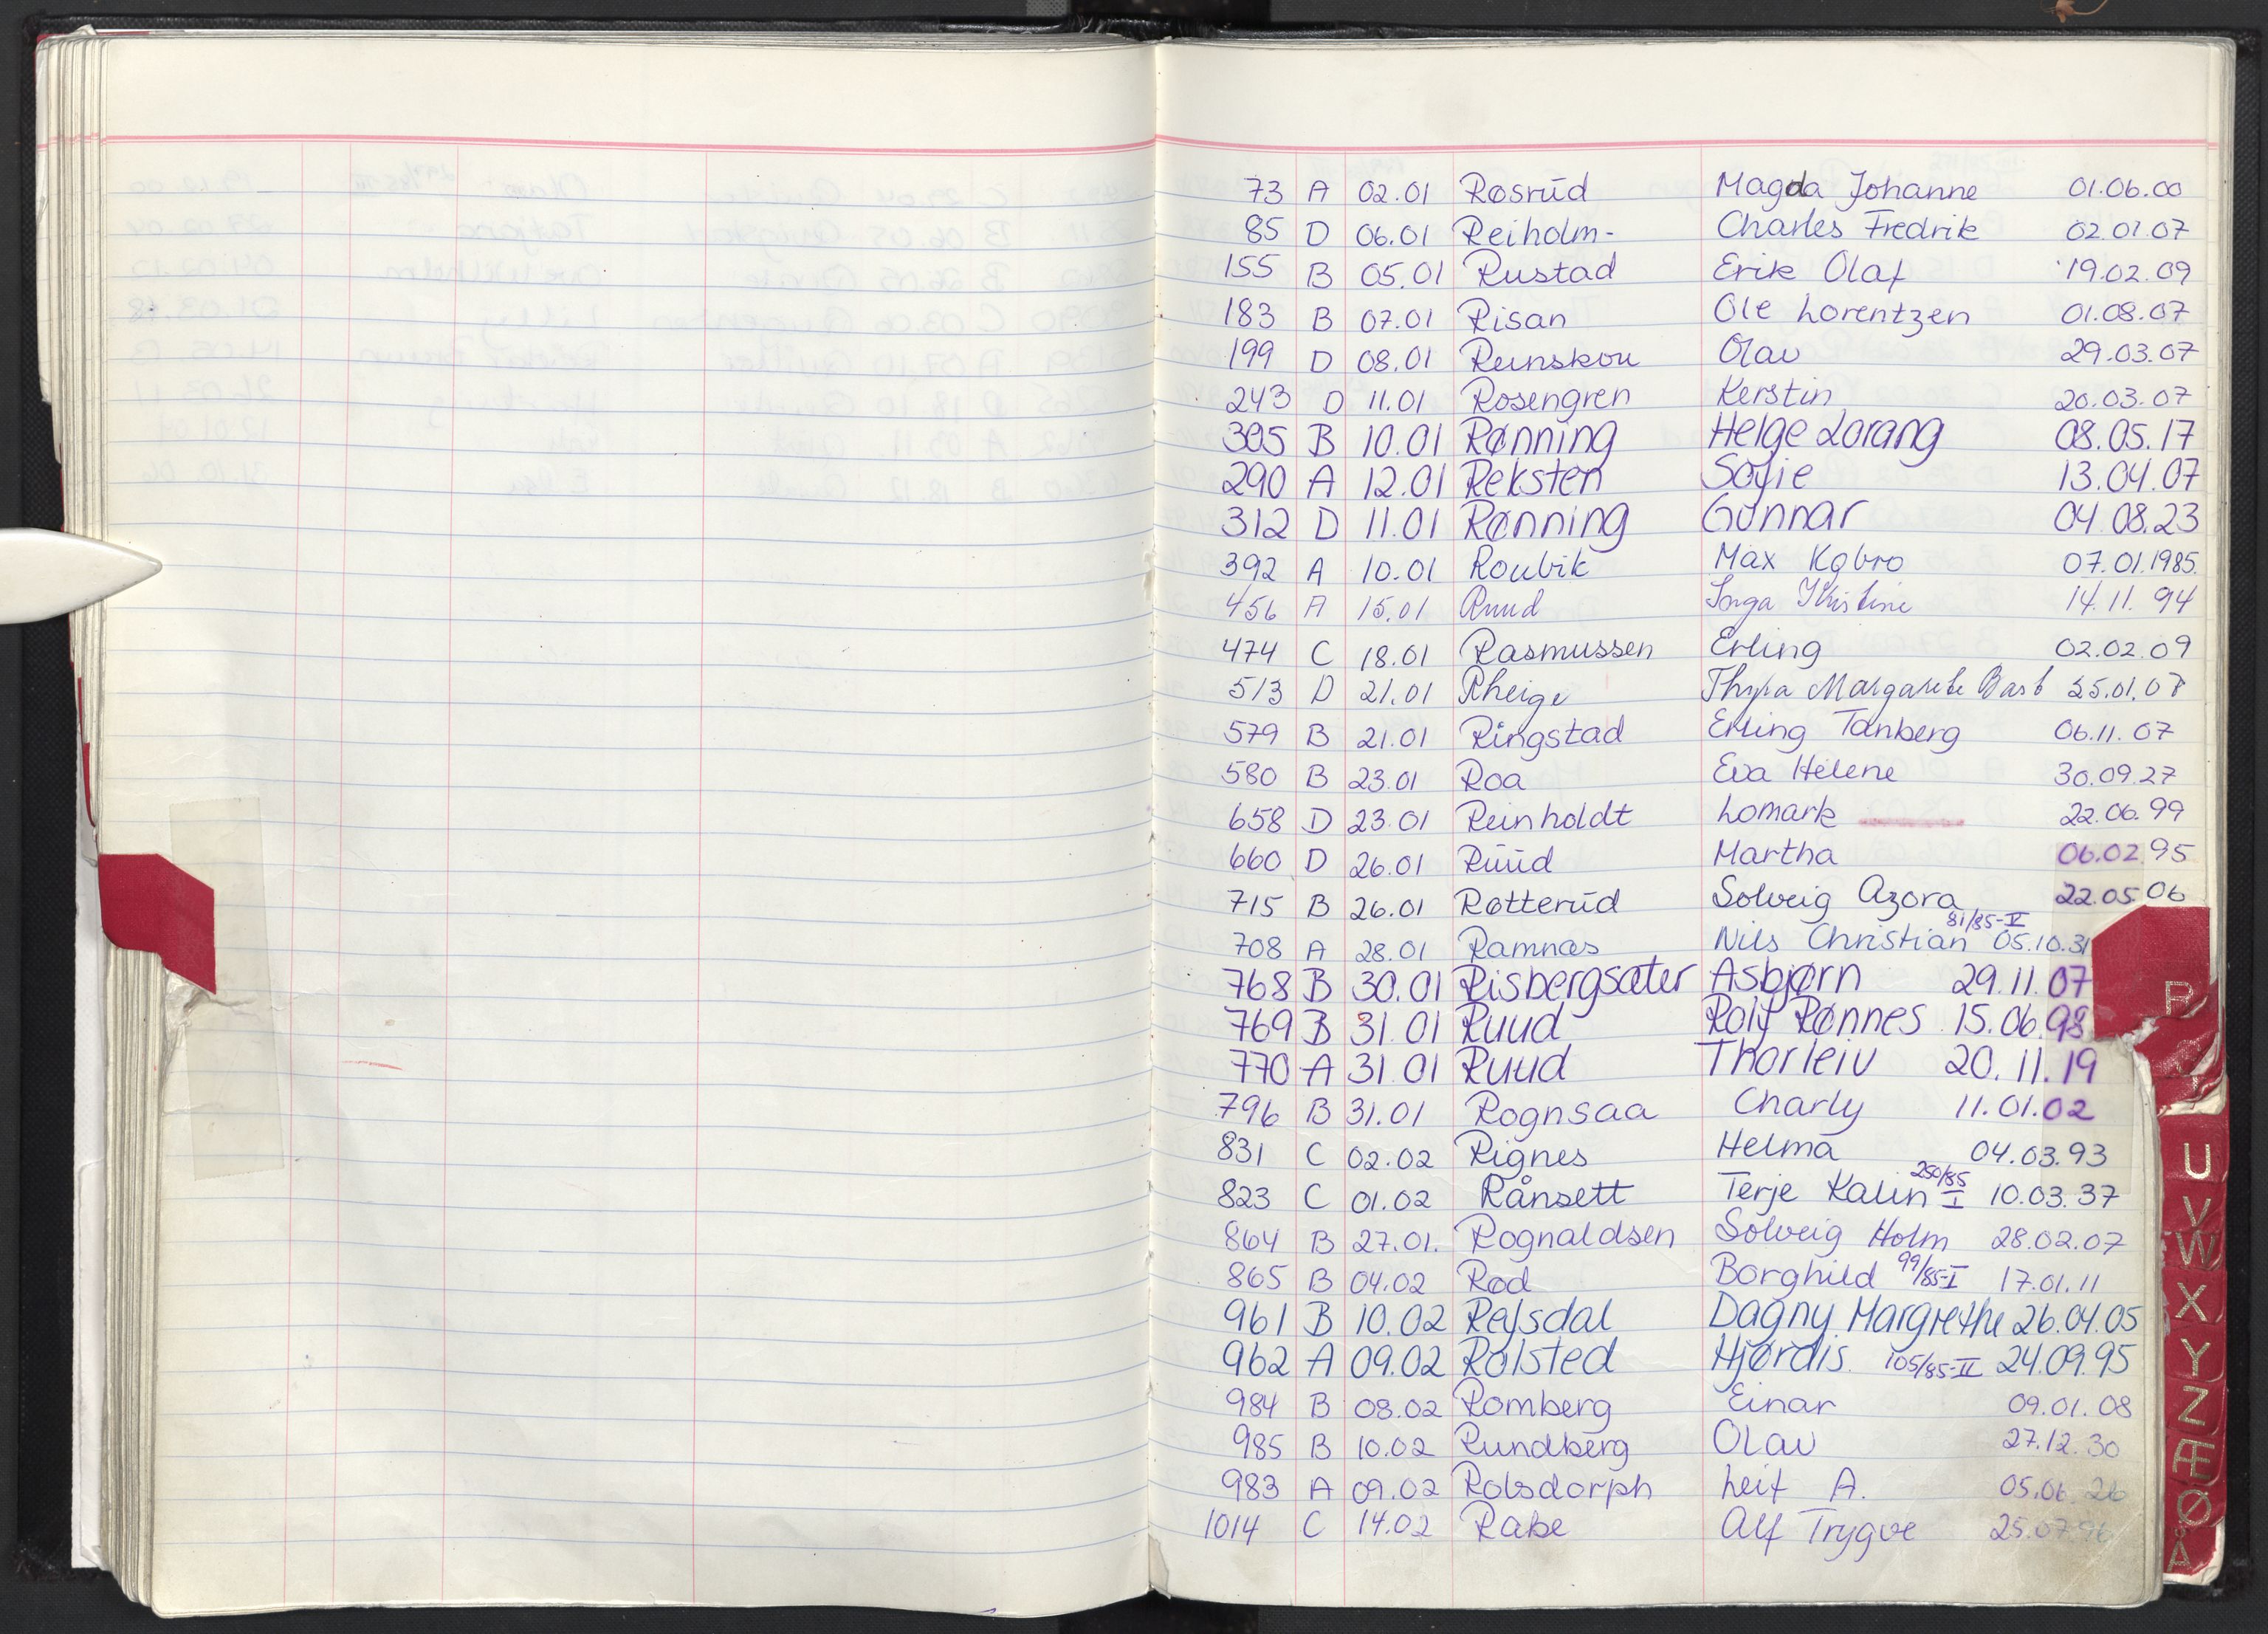 73 A 02.01 Røsrud Magda Johanne 01.06.00
85 D 06.01 Reiholm- Charles Fredrik 02.01.07
155 B 05.01 Rustad Erik Olaf 19.02.09
183 B 07.01 Risan Ole Lorentzen 01.08.07
199 D 08.01 Reinskou Olav 29.03.07
243 D 11.01 Rosengren Kerstin 20.03.07
305 B 10.01 Rønning Helge Lorang 08.05.17
290 A 12.01 Reksten Sofie 13.04.07
312 D 11.01 Rønning Gunnar 04.08.23
392 A 10.01 Roubik Max Kobro 07.01.1985
456 A 15.01 Ruud Inga Kristine 14.11.94
474 C 18.01 Rasmussen Erling 02.02.09
513 D 21.01 Rheige Margarete 25.01.07
579 B 21.01 Ringstad Erling Tanberg 06.11.07
580 B 23.01 Roa Eva Helene 30.09.27
658 D 23.01 Reinholdt Lomark 22.06.99
660 D 26.01 Ruud Martha 06.02.95
715 B 26.01 Røtterud Solveig Azora 22.05.06
708 A 28.01 Ramnæs Nils Christian 81/85-V 05.10.31
768 B 30.01 Risbergsæter Asbjørn 29.11.07
769 B 31.01 Ruud Rolf Rønnes 15.06.98
770 A 31.01 Ruud Thorleiv 20.11.19
796 B 31.01 Rognsaa Charly 11.01.02
831 C 02.02 Rignes Helma 04.03.93
823 C 01.02 Rånsett Terje Kalin 250/85 I 10.03.37
864 B 27.01. Rognaldsen Solveig Holm 28.02.07
865 B 04.02 Rød Borghild 99/85-I 17.01.11
961 B 10.02 Refsdal Dagny Margrethe 26.04.05
962 A 09.02 Rolsted Hjørdis 105/85-II 24.09.95
984 B 08.02 Romberg Einar 09.01.08
985 B 10.02 Rundberg Olav 27.12.30
983 A 09.02 Rolsdorph Leif A. 05.06.26
1014 C 14.02 Rabe Alf Trygve 25.07.96
R
U
V
W
X
Y
Z
Æ
Ø
Å